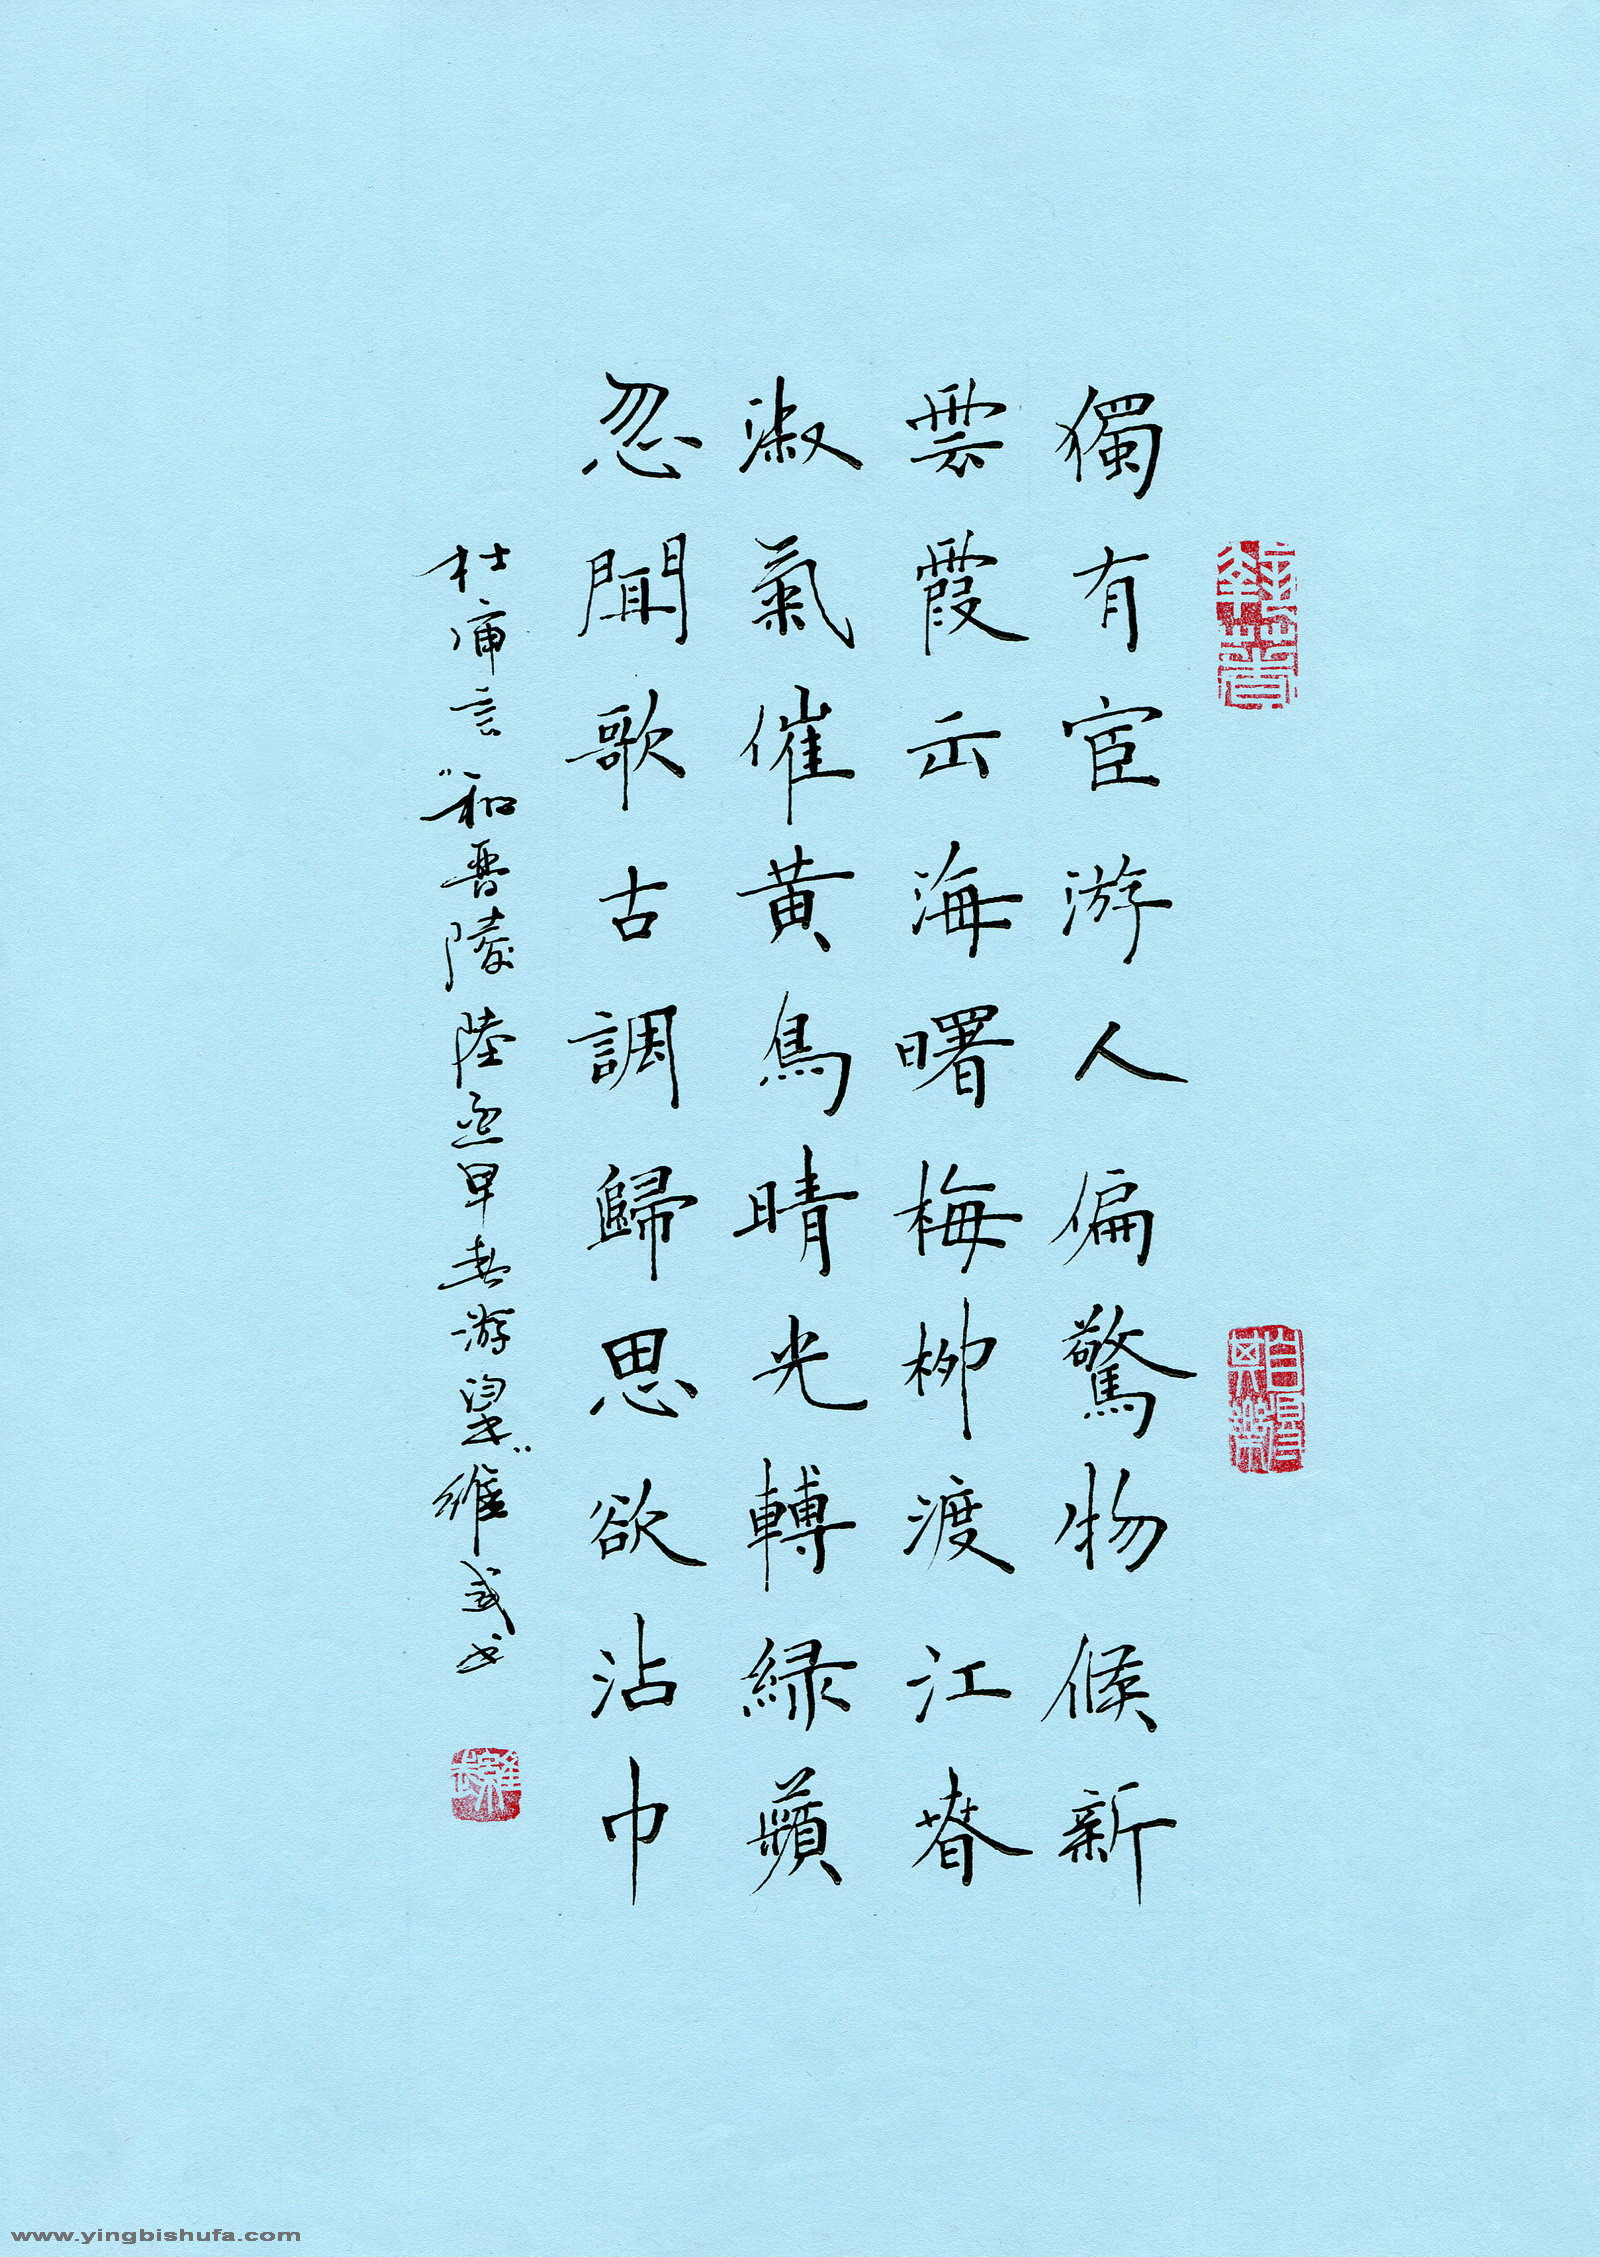 獨有宦游人偏驚物候新
雲霞出海曙梅柳渡江春
淑氣催黄鳥晴光轉緑蘋
忽聞歌古調歸思欲沾巾
杜審言"和晋陵陸丞早春游望"維武书
www.yingbishufa.com